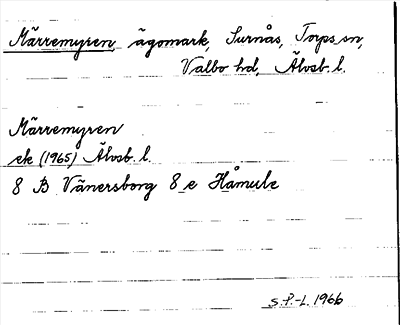 Märremyren, ägomark, Surnås, Torps sn,
Valbo hd, Älvsb. l.
Märremyren
ek (1965) Älvsb. l.
8 B Vänersborg 8 e Håmule
S.P.-L. 1966